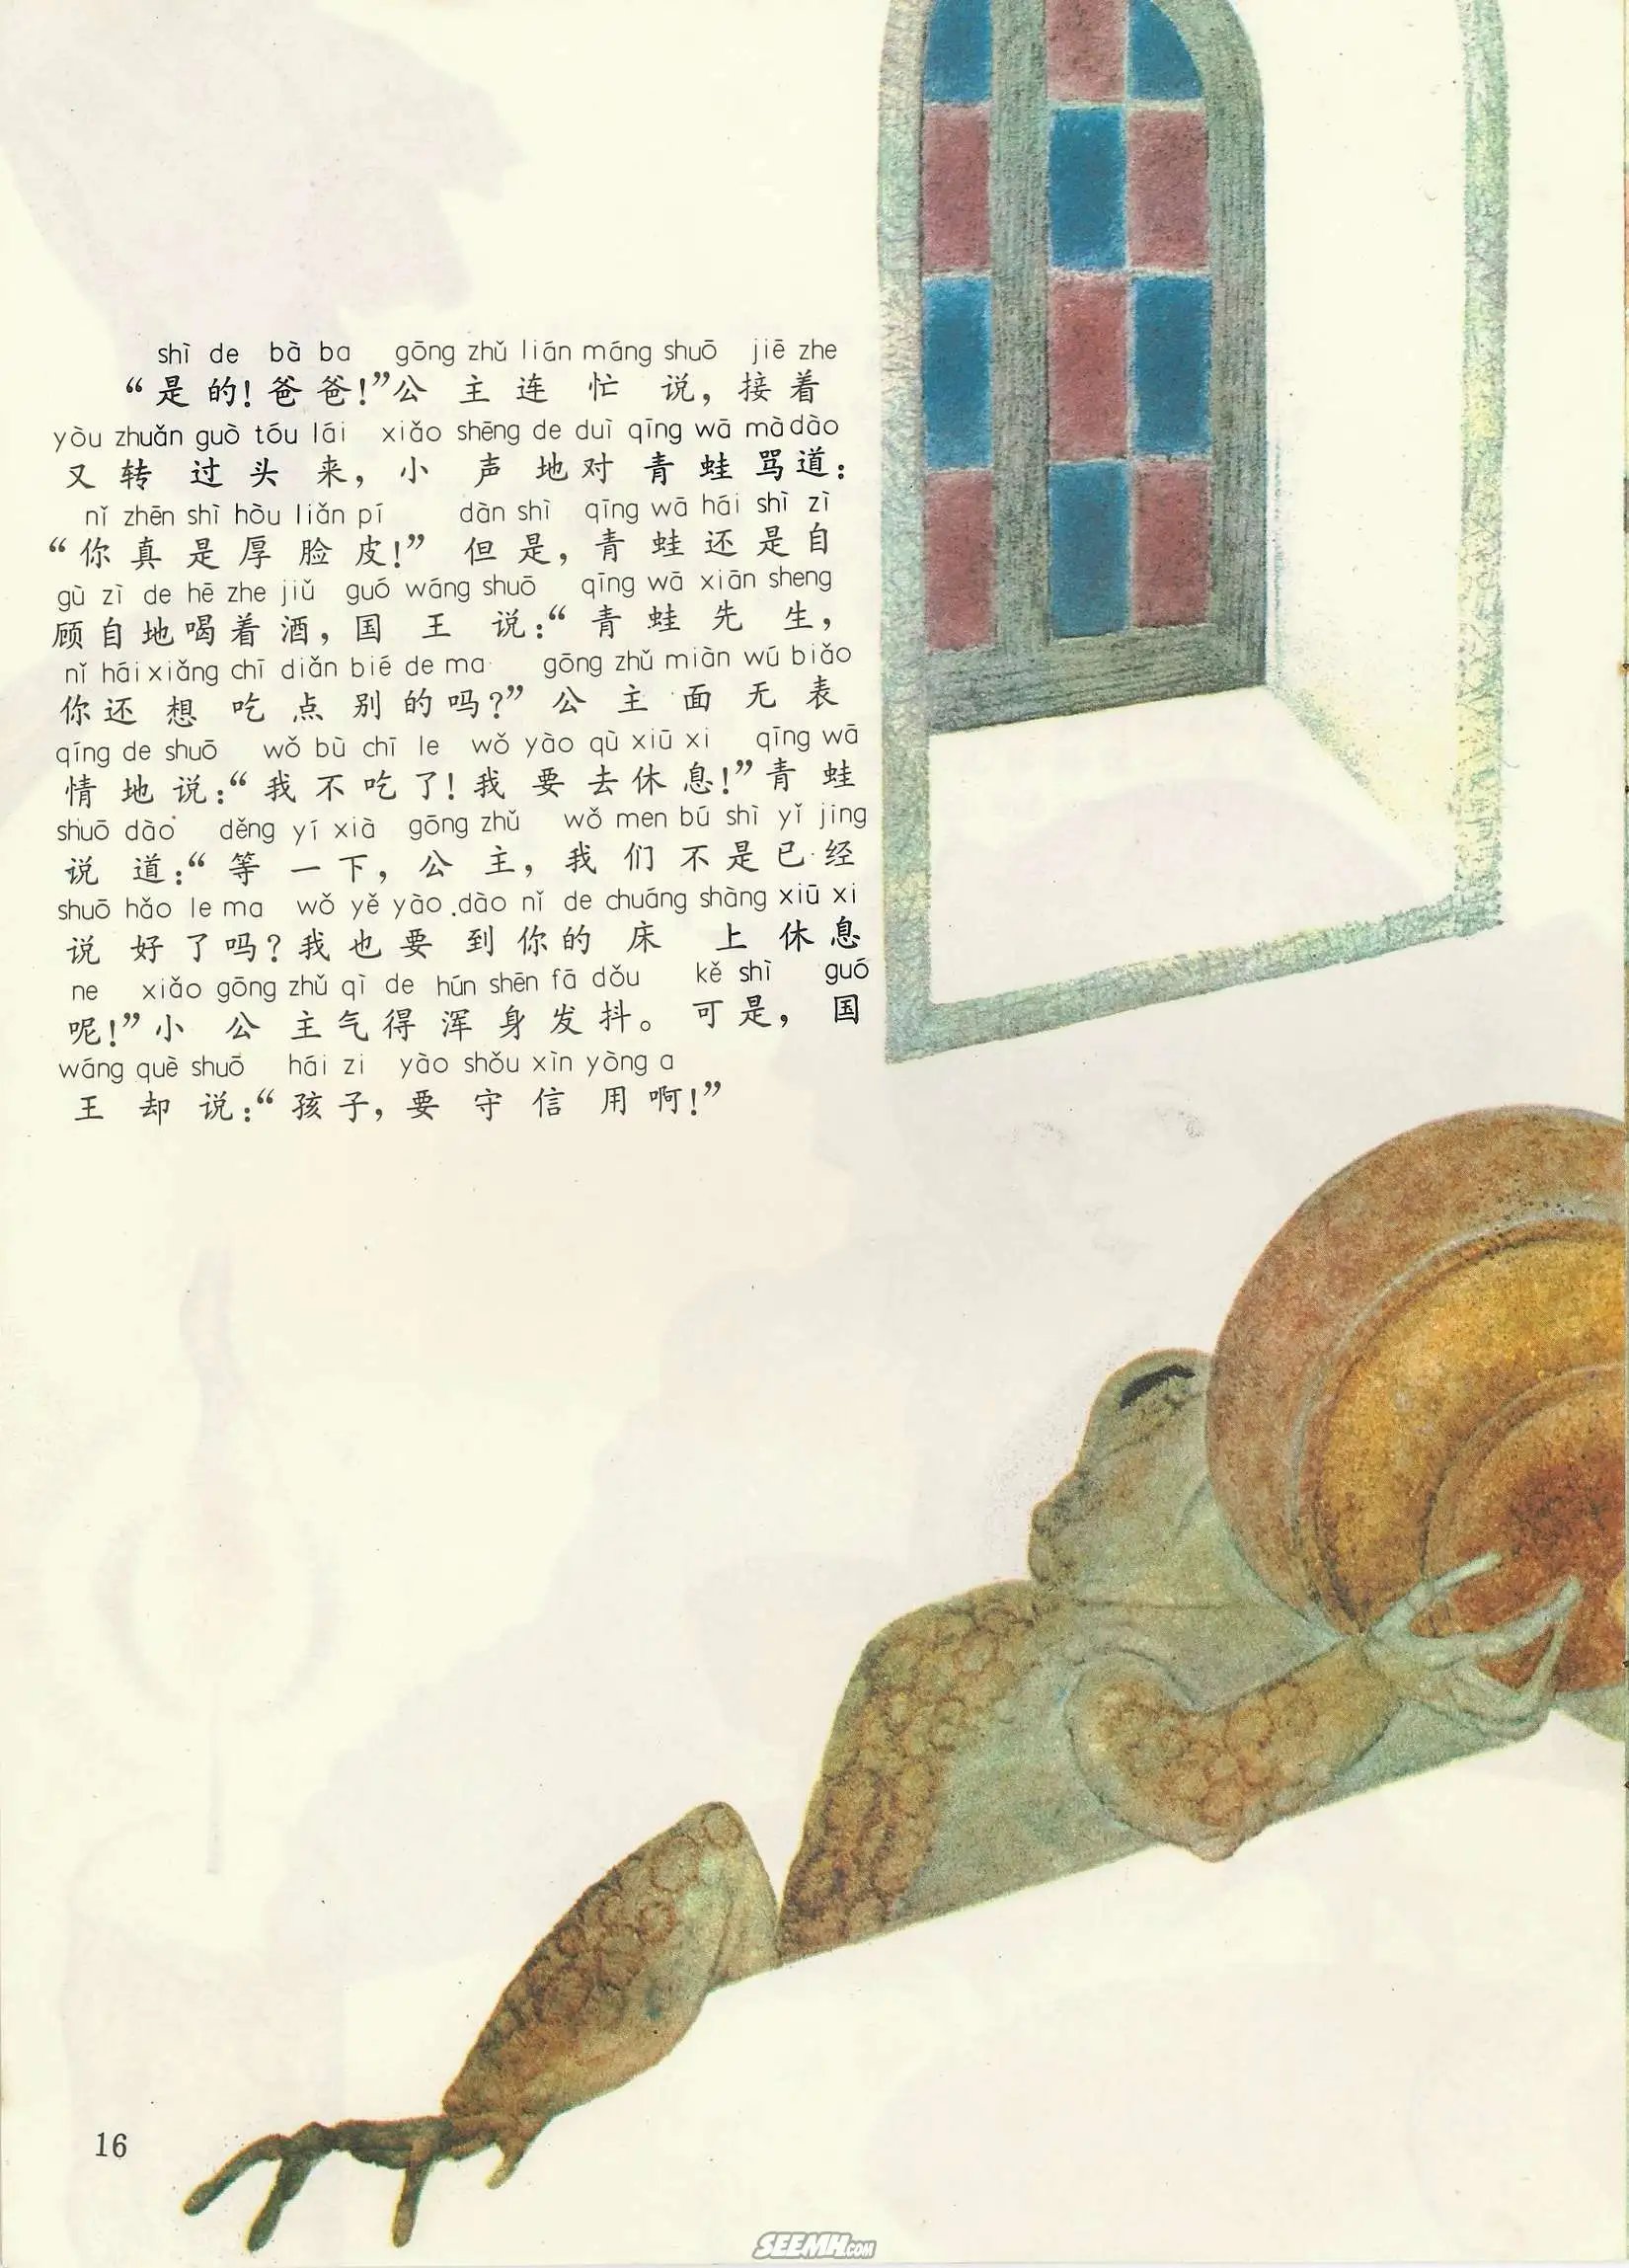 shì de bà ba gōng zhǔ lián máng shuō jiē zhe
“是的！爸爸！”公主连忙说，接着
yòu zhuǎn guò tóu lái xiǎo shēng de duì qīng wā mà dào
又转过头来，小声地对青蛙骂道：
nǐ zhēn shì hòu liǎn pí dàn shì qīng wā hái shì zì
“你真是厚脸皮！”但是，青蛙还是自
gù zì de hē zhe jiǔ guó wáng shuō qīng wā xiān sheng
顾自地喝着酒，国王说：“青蛙先生，
nǐ hái xiǎng chī diǎn bié de ma gōng zhǔ miàn wú biǎo
你还想吃点别的吗？”公主面无表
qíng de shuō wǒ bù chī le wǒ yào qù xiū xi qīng wā
情地说：“我不吃了！我要去休息！”青蛙
shuō dào děng yí xià gōng zhǔ wǒ men bú shì yǐ jing
说道：“等一下，公主，我们不是已经
shuō hǎo le ma wǒ yě yào dào nǐ de chuáng shàng xiū xi
说好了吗？我也要到你的床上休息
ne xiǎo gōng zhǔ qì de hún shēn fā dǒu kě shì guó
呢！”小公主气得浑身发抖。可是，国
wáng què shuō hái zi yào shǒu xìn yòng a
王却说：“孩子，要守信用啊！”
16
SEEMH.COM